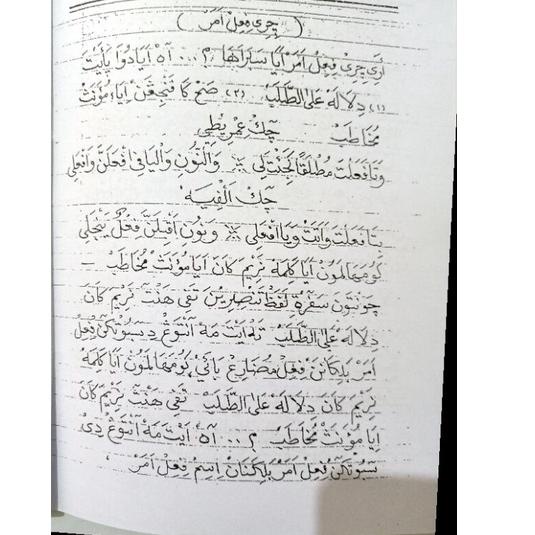 ( چِرِى فِعِلْ اَمَرْ )
اَرِى چِرِىْ فِعِلُ اَمَرْ اَيَا سَبَرَاهَا ؟ ... اَهْ اَبَادُوَا يَأَيْتَ
(١) دِلَالَهْ عَلَى الطَّلَبْ (٢) صَحْ كَا فَنْجِڠَنْ اِيَاءْ مُؤَنَّثْ
مُخَاطَبْ چَكْ عِمْرِيطِى
وَتَاءَ فَعَلْتَ مُطْلَقًا كَجِئْتَ لِى ** وَالنُّوْنِ وَالْيَا فِى افْعَلَنَّ وَافْعَلِى
چَكْ اَلْفِيَهْ
بِتَا فَعَلْتَ وَاَتَتْ وَيَا افْعَلِى ** وَنُوْنِ اَقْبِلَنَّ فِعْلٌ يَنْجَلِى
كُومَهَالَمُوْنْ اَيَا كَلِمَهْ نَرِيْمَ كَانْ اَيَا مُؤَنَّثْ مُخَاطَبْ –
چَوْنْتَوْنْ سَفَرْةِ لَفَظْ تَنْصُرِيْنَ تَڤِى هَنْتَ نَرِيْمَ كَانْ
دِلَالَهْ عَلَى الطَّلَبْ تَهْ اَيْتْ مَهْ اَنْتَوْڠْ دِ سَبُوْتْكَنْ فِعِلْ
اَمَرْ بَلِكَانَنْ فِعِلْ مُضَارِعْ بَائَىْ كُومَهَالَمُوْنْ اَيَا كَلِمَهْ
نَرِيْمَ كَانْ دِلَالَهْ عَلَى الطَّلَبْ تَڤِى هَنْتَ نَرِيْمَ كَانْ
اِيَا مُؤَنَّثْ مُخَاطَبْ ؟ ... اَهْ اَيْتْ مَهْ اَنْتَوْڠْ دِىْ
سَبُوْتْكَنْ فِعِلْ اَمَرْ بَلِكَنَانْ اِسِمْ فِعِلْ اَمَرْ ،